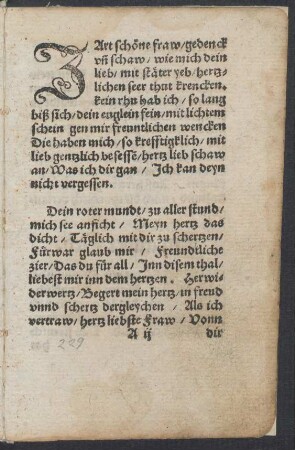 ZArt schöne fraw/gedenck
vñ schaw/wie mich dein
lieb/mit stäter yeb/hertz-
lichen seer thut krencken.
kein rhu hab ich/so lang
biß sich/dein euglein fein/mit lichtem
schein gen mir freuntlichen wencken
Die haben mich/so krefftigklich/mit
lieb gentzlich besessē/hertz lieb schaw
an/Was ich dir gan/Ich kan deyn
nicht vergessen.
Dein roter mundt/zu aller stund/
mich see anficht/Meyn hertz das
dicht/Täglich mit dir zu schertzen/
Fürwar glaub mir/Freundtliche
zier/Das du für all/Inn disem thal/
liebest mir inn dem hertzen. Her wi-
der wertz/Begert mein hertz/in freud
vnnd schertz dergleychen/Als ich
vertraw/hertz liebste Fraw/Vonn
A ij dir
229